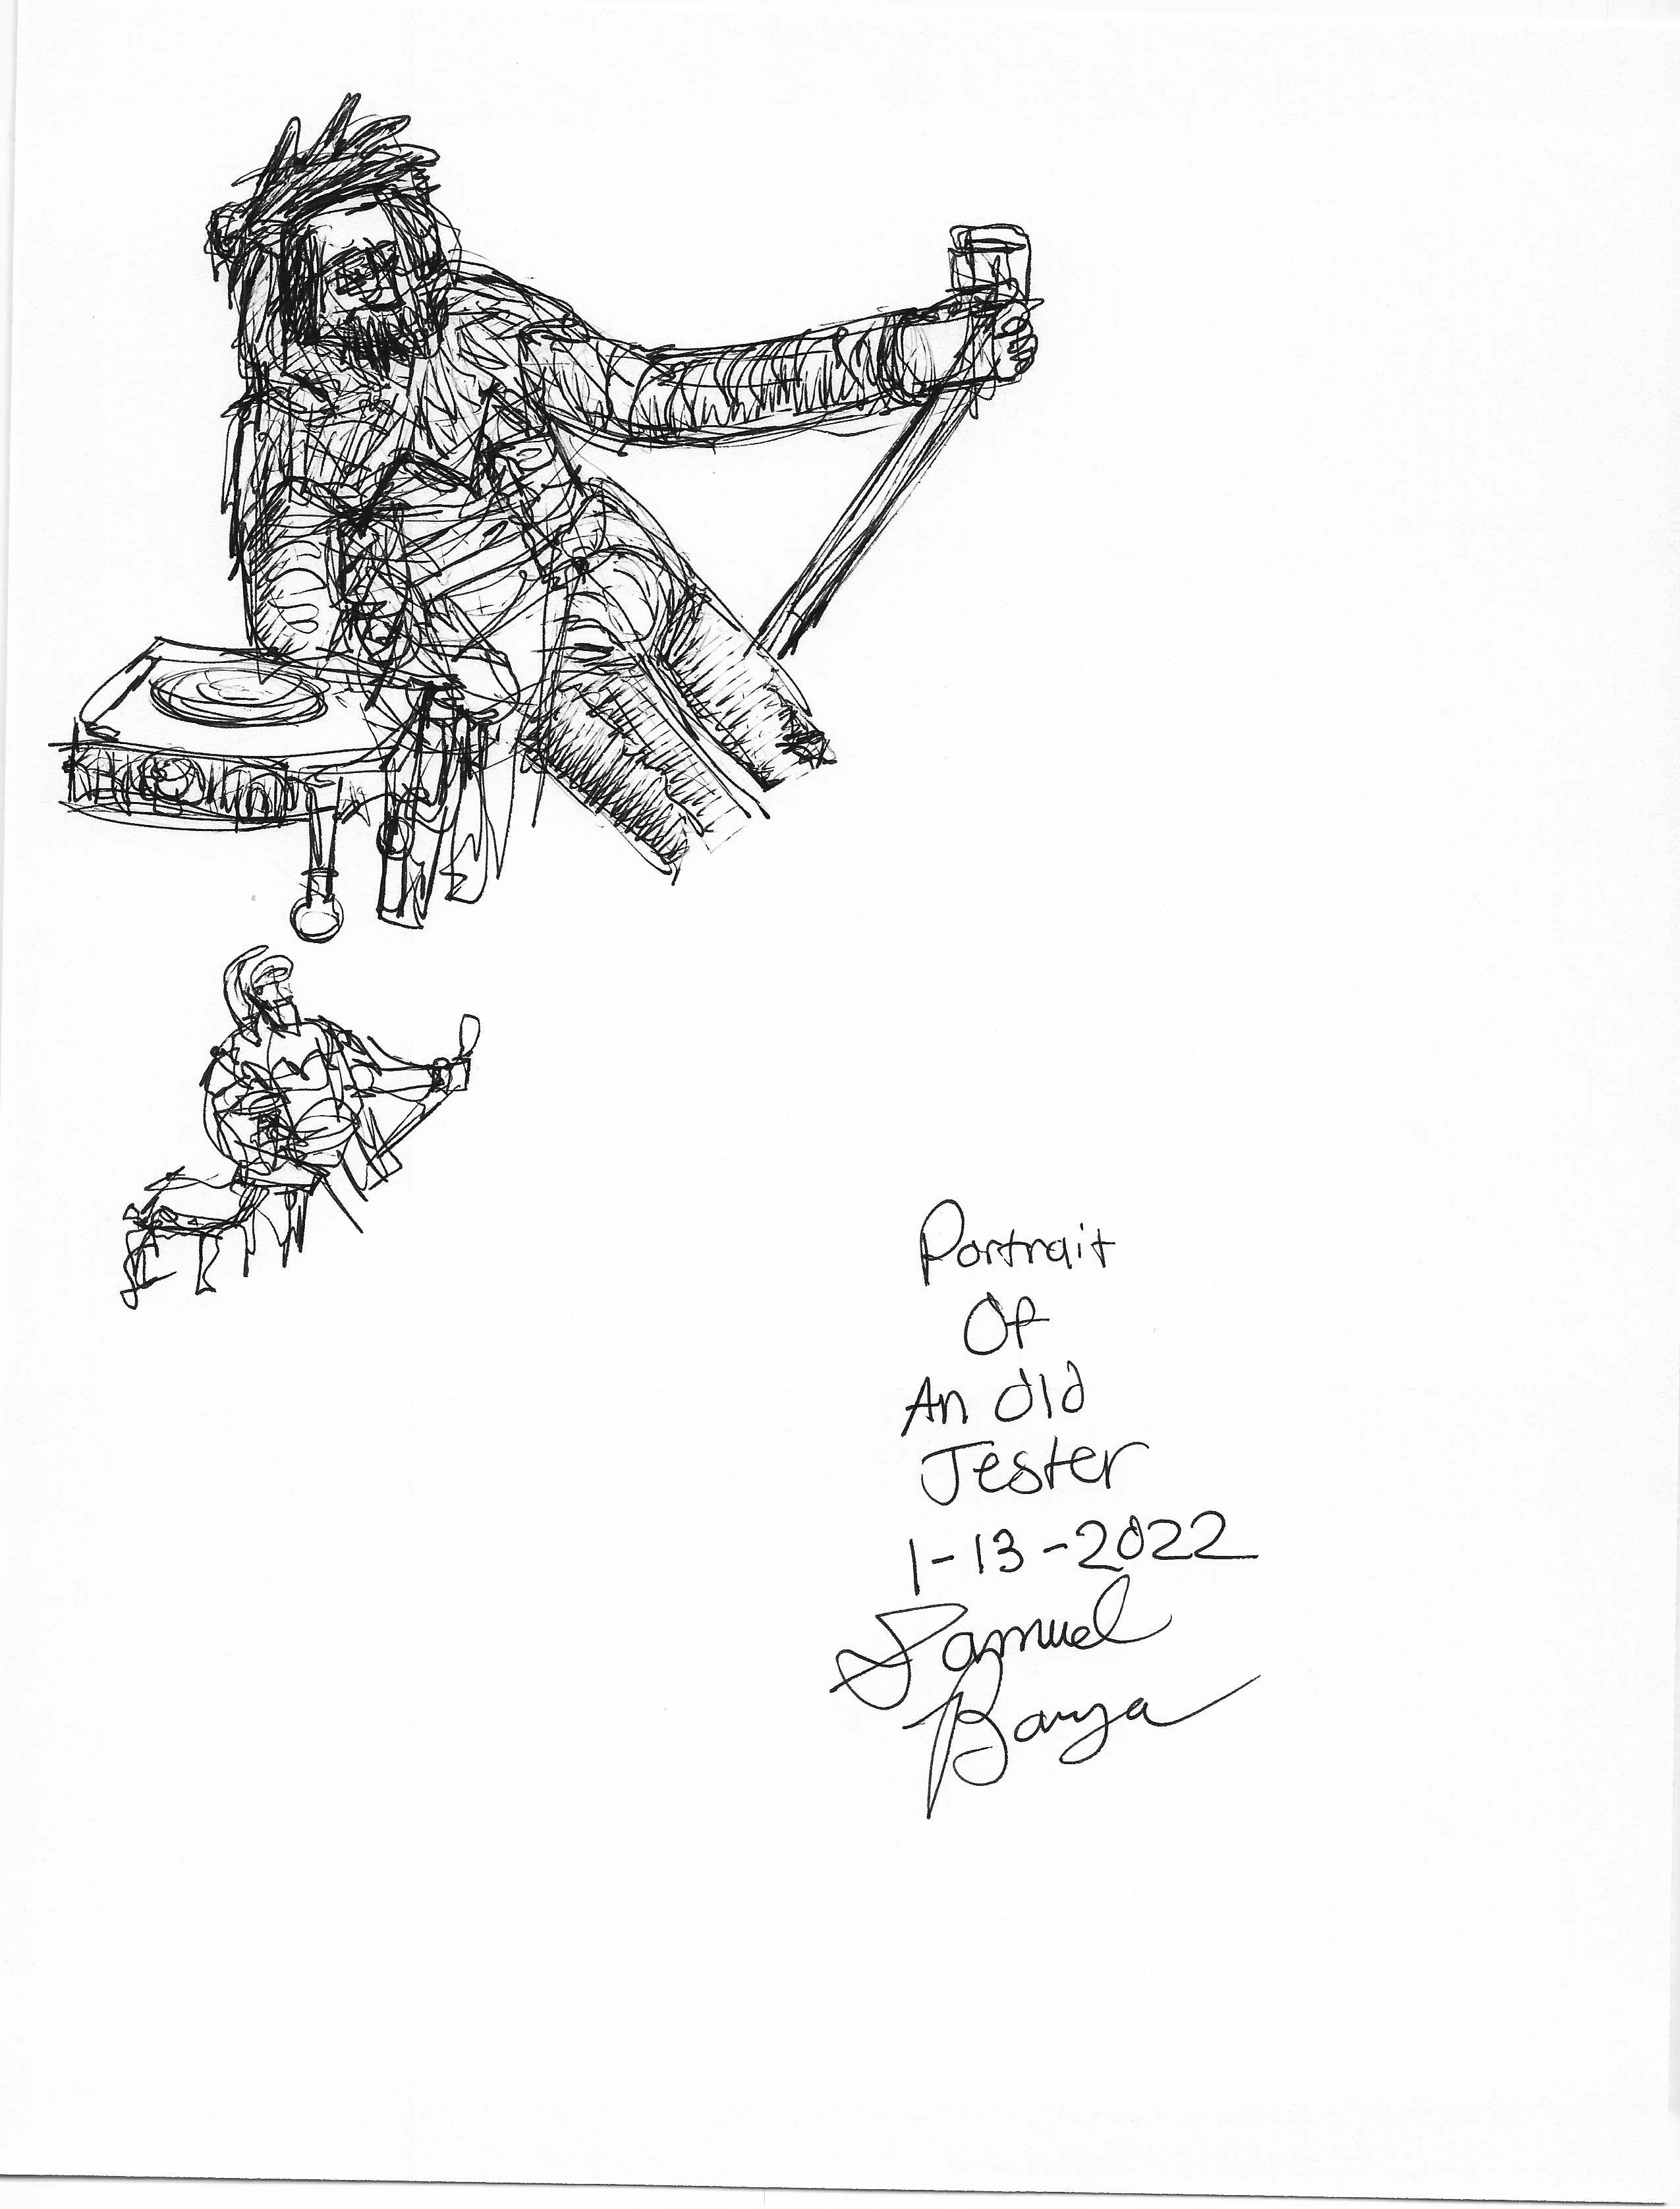 Portrait
Of
An Old
Jester
1-13-2022
Samuel
Banya